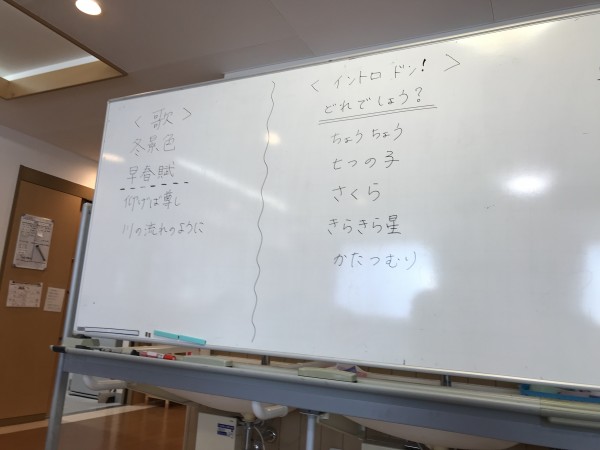 ＜ 歌 ＞
冬景色
早春賦
仰げば尊し
川の流れのように
＜ イントロ ドン! ＞
どれでしょう?
ちょうちょう
七つの子
さくら
きらきら星
かたつむり